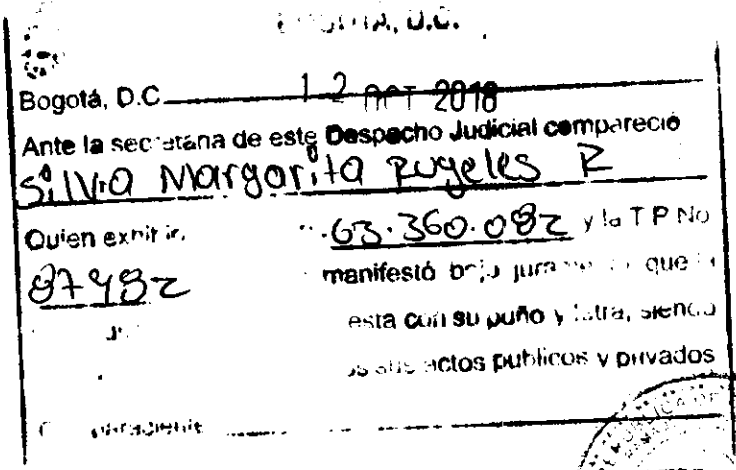 D.C.
Bogotá, D.C. 12 OCT 2018
Ante la secretaria de este Despacho Judicial compareció
Silvia Margarita Rugeles R
Quien 63.360.082 y la T P No
87982
manifestó bajo que
esta con su puño y letra, siendo
sus actos publicos y privados